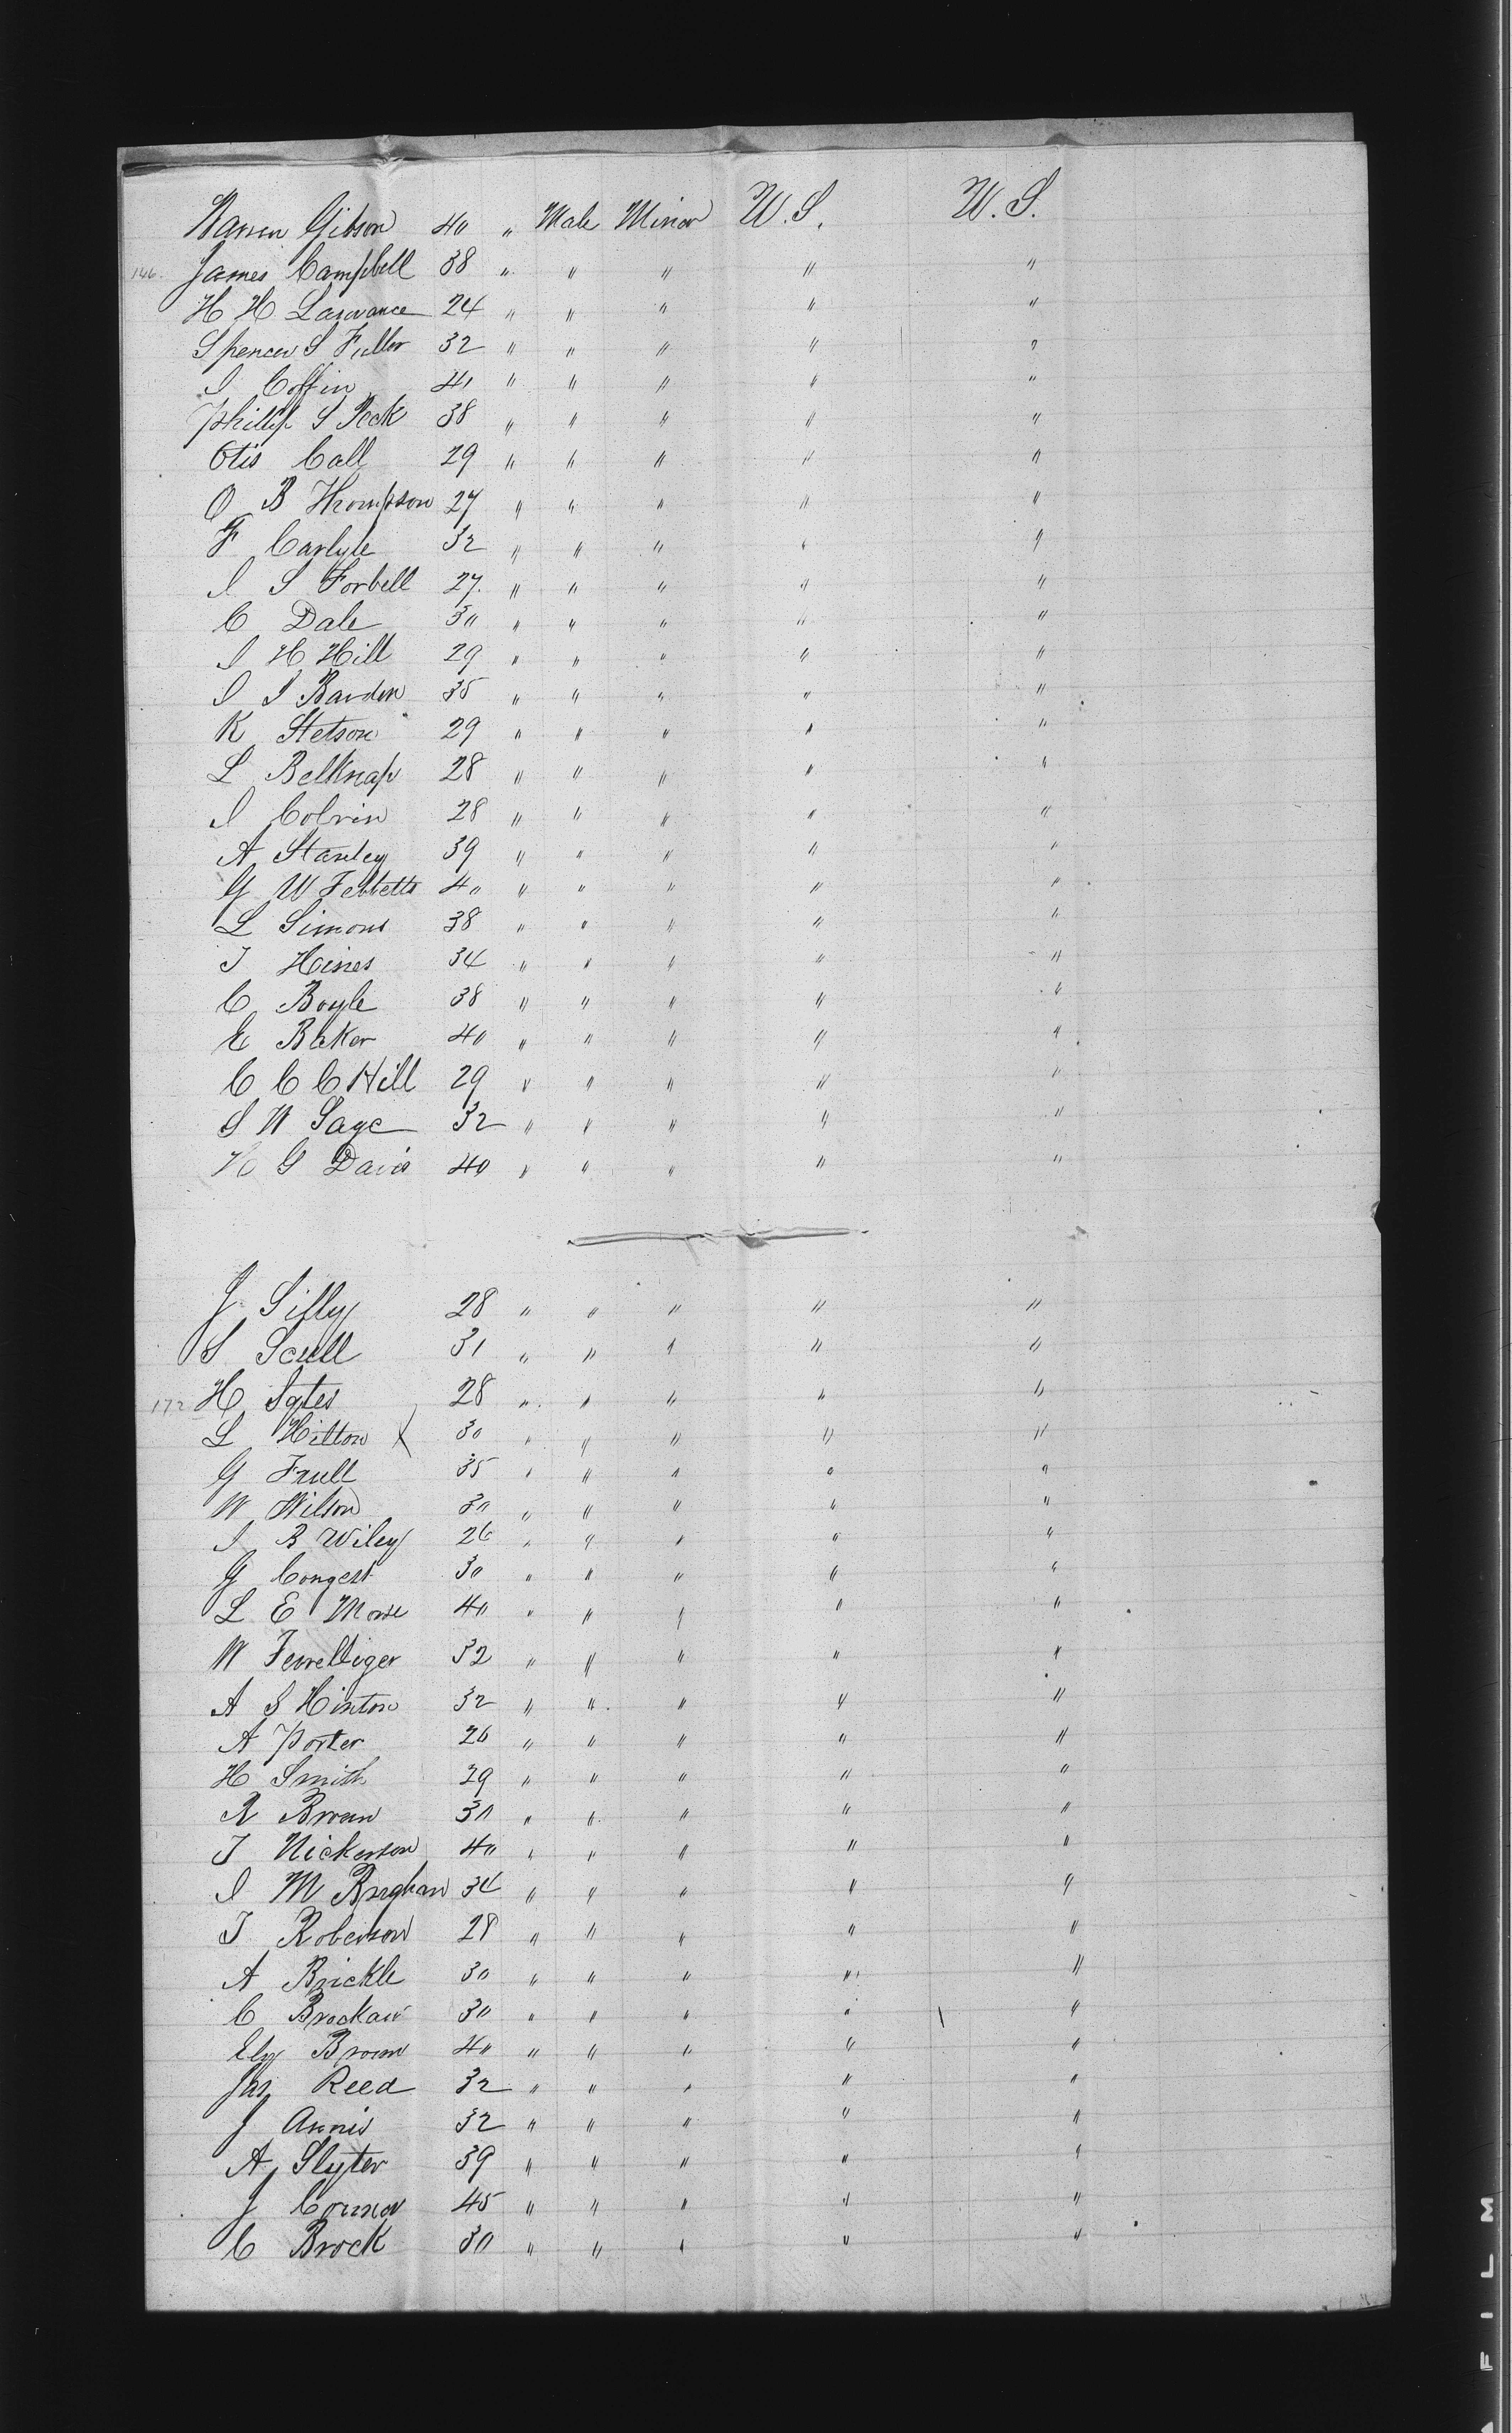 Gibson 40 " Male Minor U.S. U.S.
146. James Campbell 38 " " " " "
H H Lawrance 24 " " " " "
Spencer S Fuller 32 " " " " "
I Coffin 41 " " " " "
Phillip S Peck 38 " " " " "
Otis Call 29 " " " " "
O B Thompson 27 " " " " "
F Carlyle 32 " " " " "
I S Forbell 27. " " " " "
C Dale 30 " " " " "
I H Hill 29 " " " " "
I I Barden 35 " " " " "
K Stetson 29 " " " " "
L Belknap 28 " " " " "
I Colvin 28 " " " " "
A Stanley 39 " " " " "
G W Tebbetts 40 " " " " "
L Simons 38 " " " " "
J Hines 34 " " " " "
C Boyle 38 " " " " "
E Baker 40 " " " " "
C C C Hill 29 " " " " "
S W Sage 32 " " " " "
G Davis 40 " " " " "
J Silly 28 " " " " "
S Scull 31 " " " " "
172 H Sytes 28 " " " " "
L Hilton X 30 " " " " "
G Frull 35 " " " " "
W Wilson 30 " " " " "
I B Wiley 26 " " " " "
G Congest 30 " " " " "
L E Morse 40 " " " " "
W Terrelliger 32 " " " " "
A S Hinton 32 " " " " "
A Porter 26 " " " " "
H Smith 29 " " " " "
R Brown 30 " " " " "
J Nickerson 40 " " " " "
I M Brigham 34 " " " " "
J Roberson 28 " " " " "
A Brickle 30 " " " " "
C Brockaw 30 " " " " "
Ely Brown 40 " " " " "
Jas Reed 32 " " " " "
J Annis 32 " " " " "
A Slyter 39 " " " " "
J Connor 45 " " " " "
C Brock 30 " " " " "
FILM